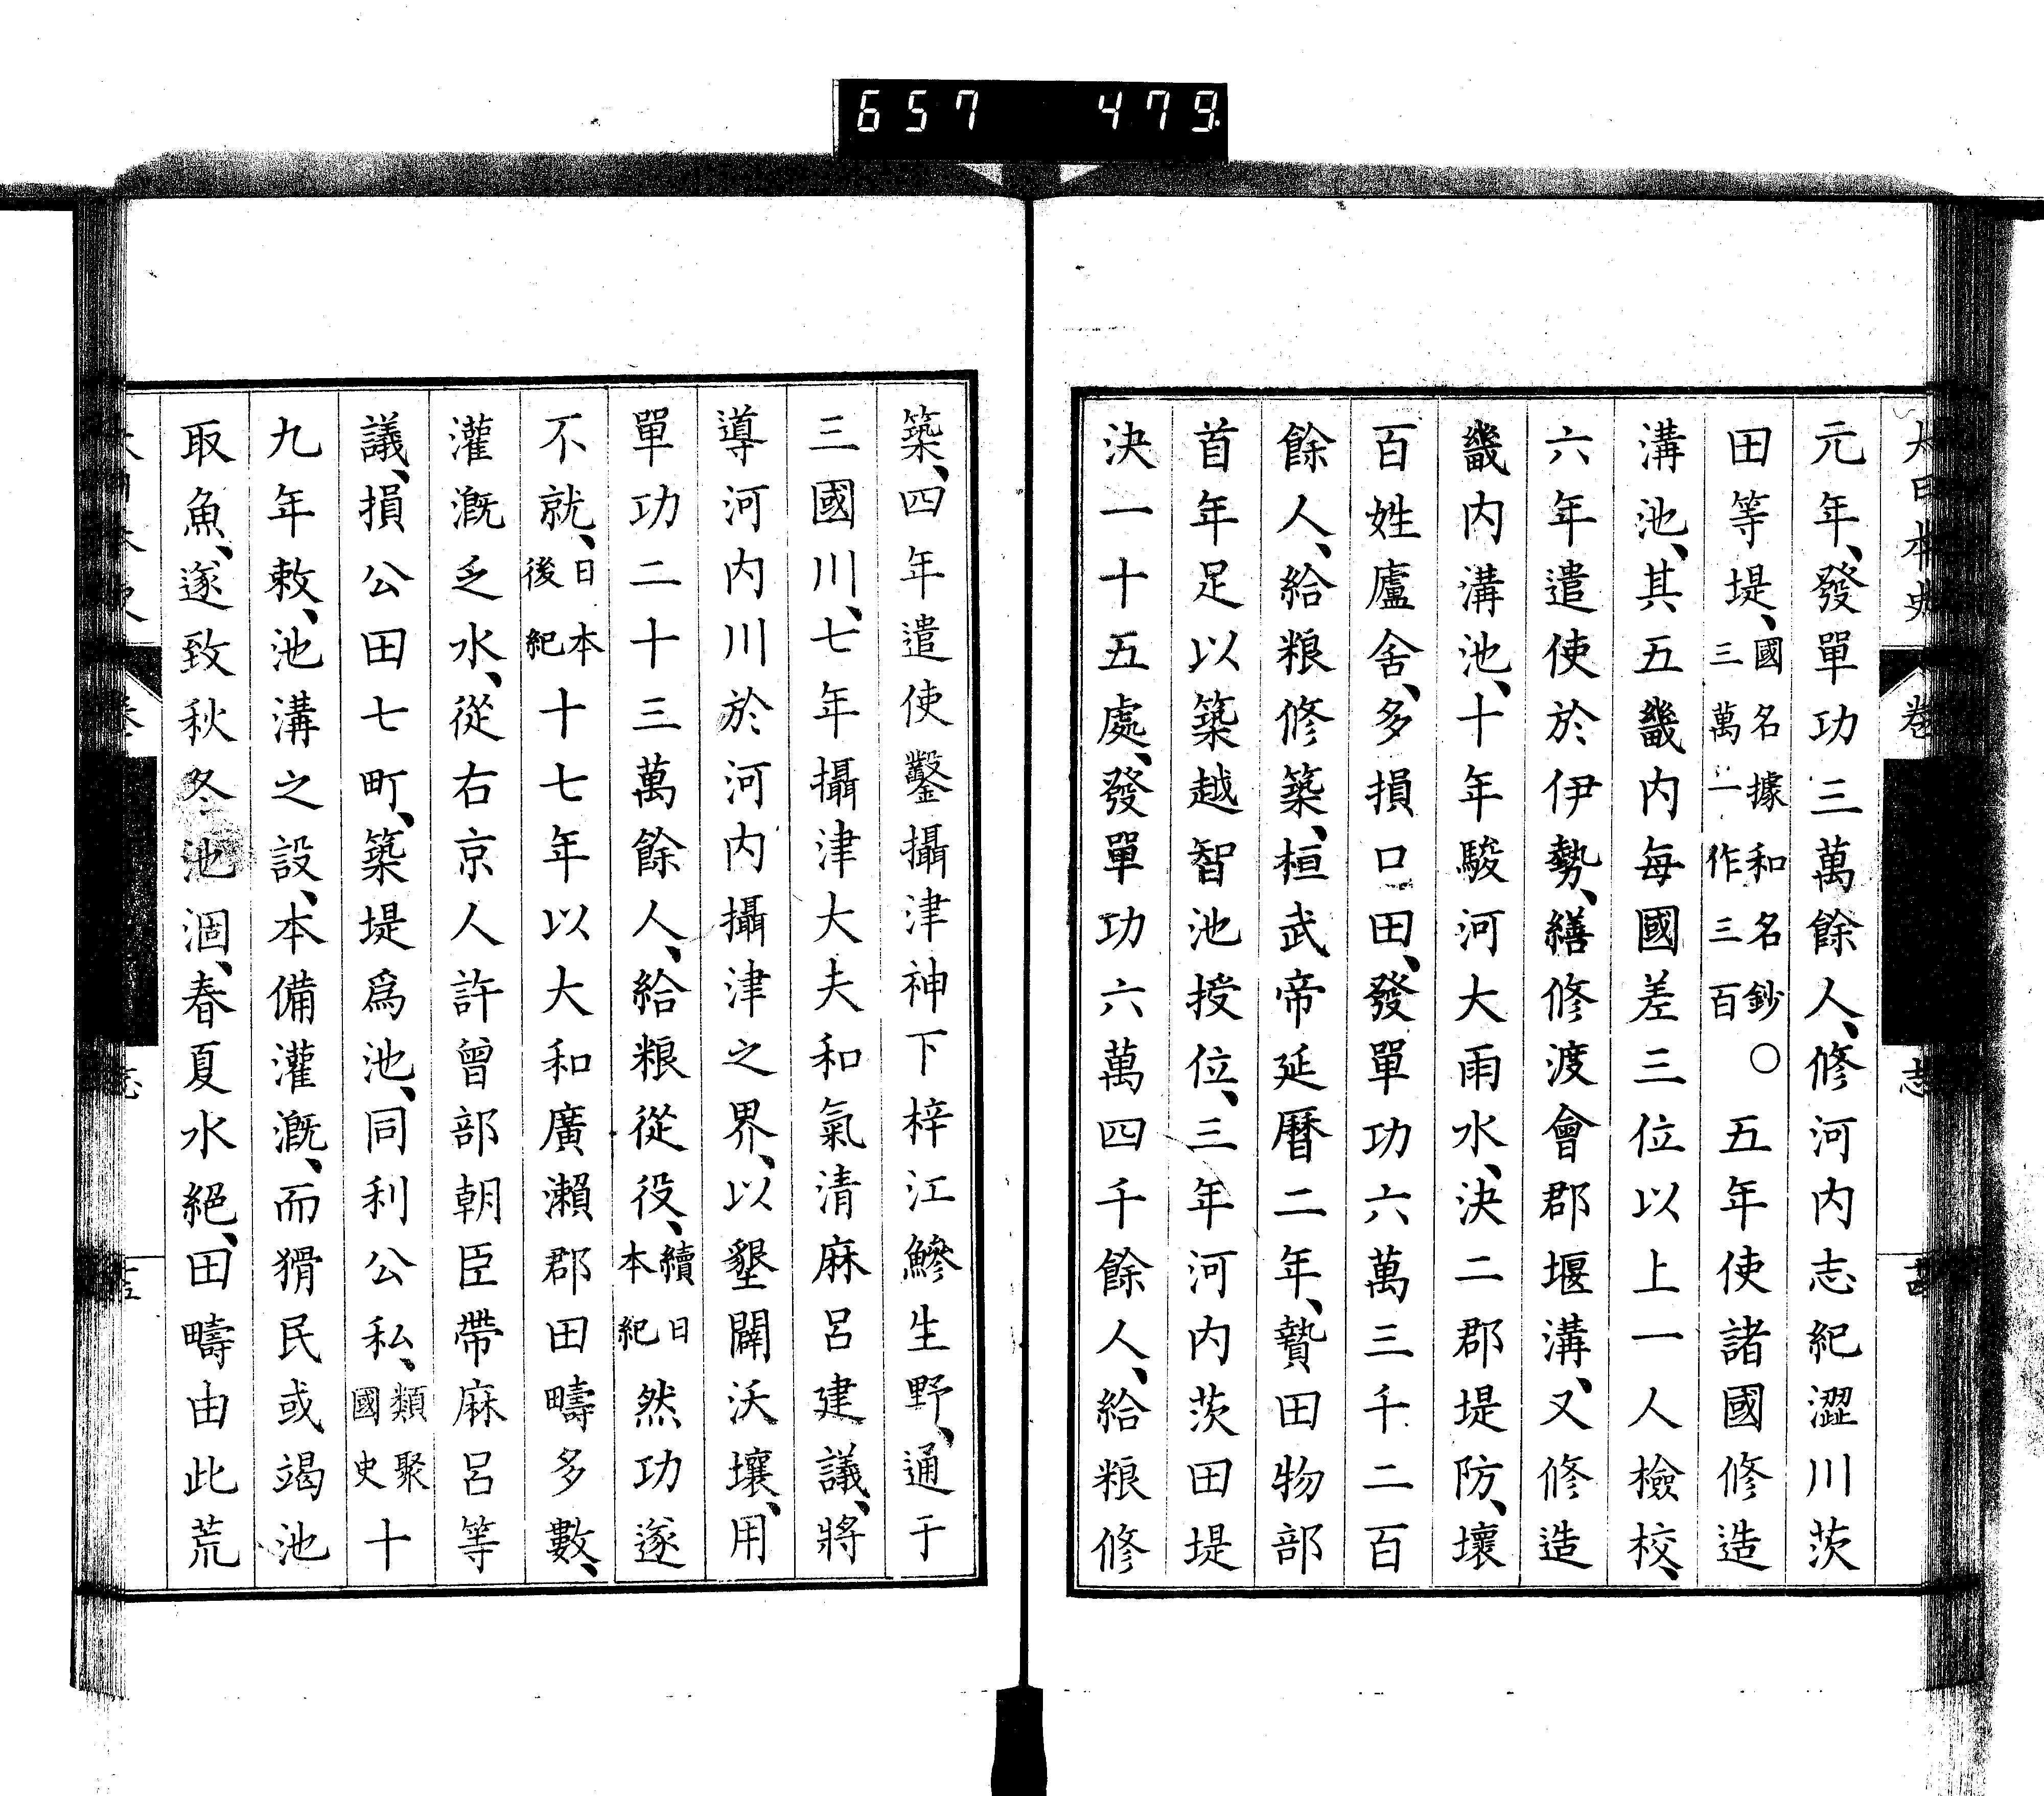 657 479
大日本史 卷 志
元年、發單功三萬餘人、修河内志紀澀川茨
田等堤、國名據和名鈔○三萬一作三百五年使諸國修造
溝池、其五畿内每國差三位以上一人檢校、
六年遣使於伊勢、繕修渡會郡堰溝、又修造
畿内溝池、十年駿河大雨水、決二郡堤防、壞
百姓廬舍、多損口田、發單功六萬三千二百
餘人、給粮修築、桓武帝延曆二年、贄田物部
首年足以築越智池授位、三年河内茨田堤
決一十五處、發單功六萬四千餘人、給粮修
築、四年遣使鑿攝津神下梓江鯵生野、通于
三國川、七年攝津大夫和氣清麻呂建議、將
導河内川於河内攝津之界、以墾闢沃壤、用
單功二十三萬餘人、給粮從役、續日本紀然功遂
不就、日本後紀十七年以大和廣瀨郡田疇多數、
灌漑乏水、從右京人許曾部朝臣帶麻呂等
議、損公田七町、築堤爲池、同利公私、類聚國史十
九年敕、池溝之設、本備灌漑、而猾民或竭池
取魚、遂致秋冬池涸、春夏水絕、田疇由此荒